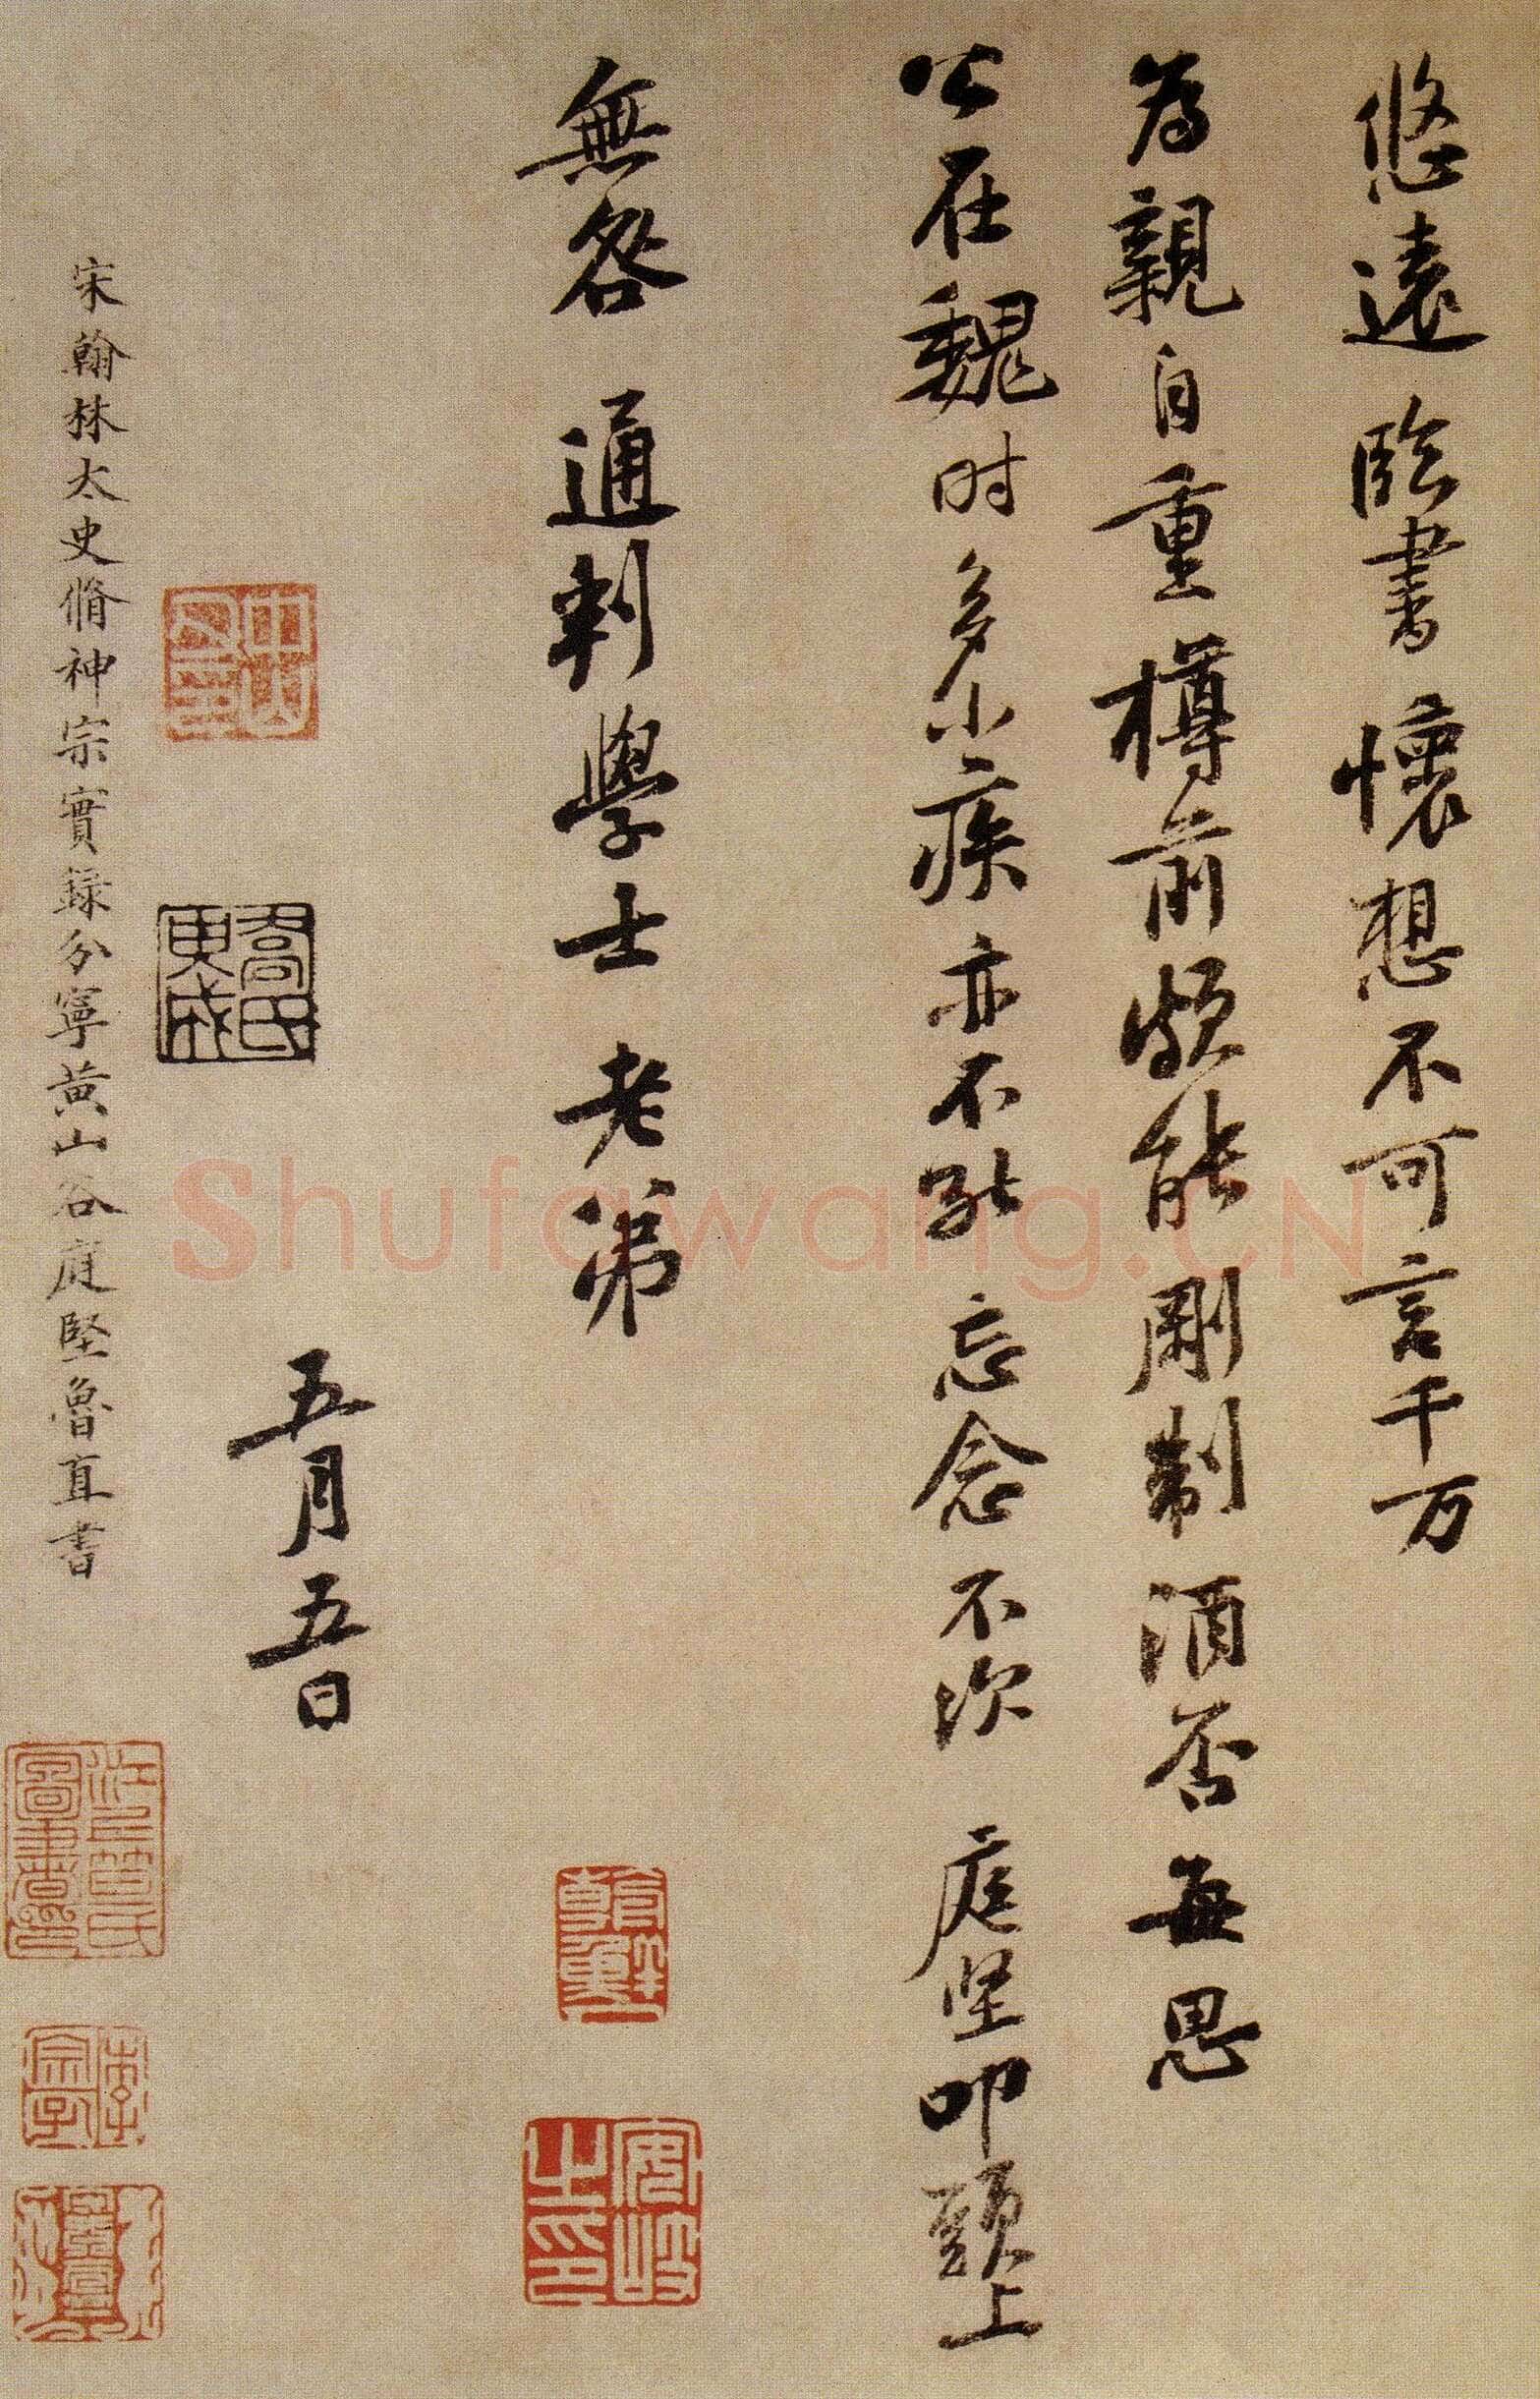 悠遠臨書懷想不可言千万
為親自重樽前頗能剛制酒否每思
公在魏时多小疾亦不能忘念不次庭坚叩頭上
無咎通判學士老弟
五月五日
宋翰林太史脩神宗實録分寧黃山谷庭堅魯直書
喬氏
安岐之印
Shufawang.CN